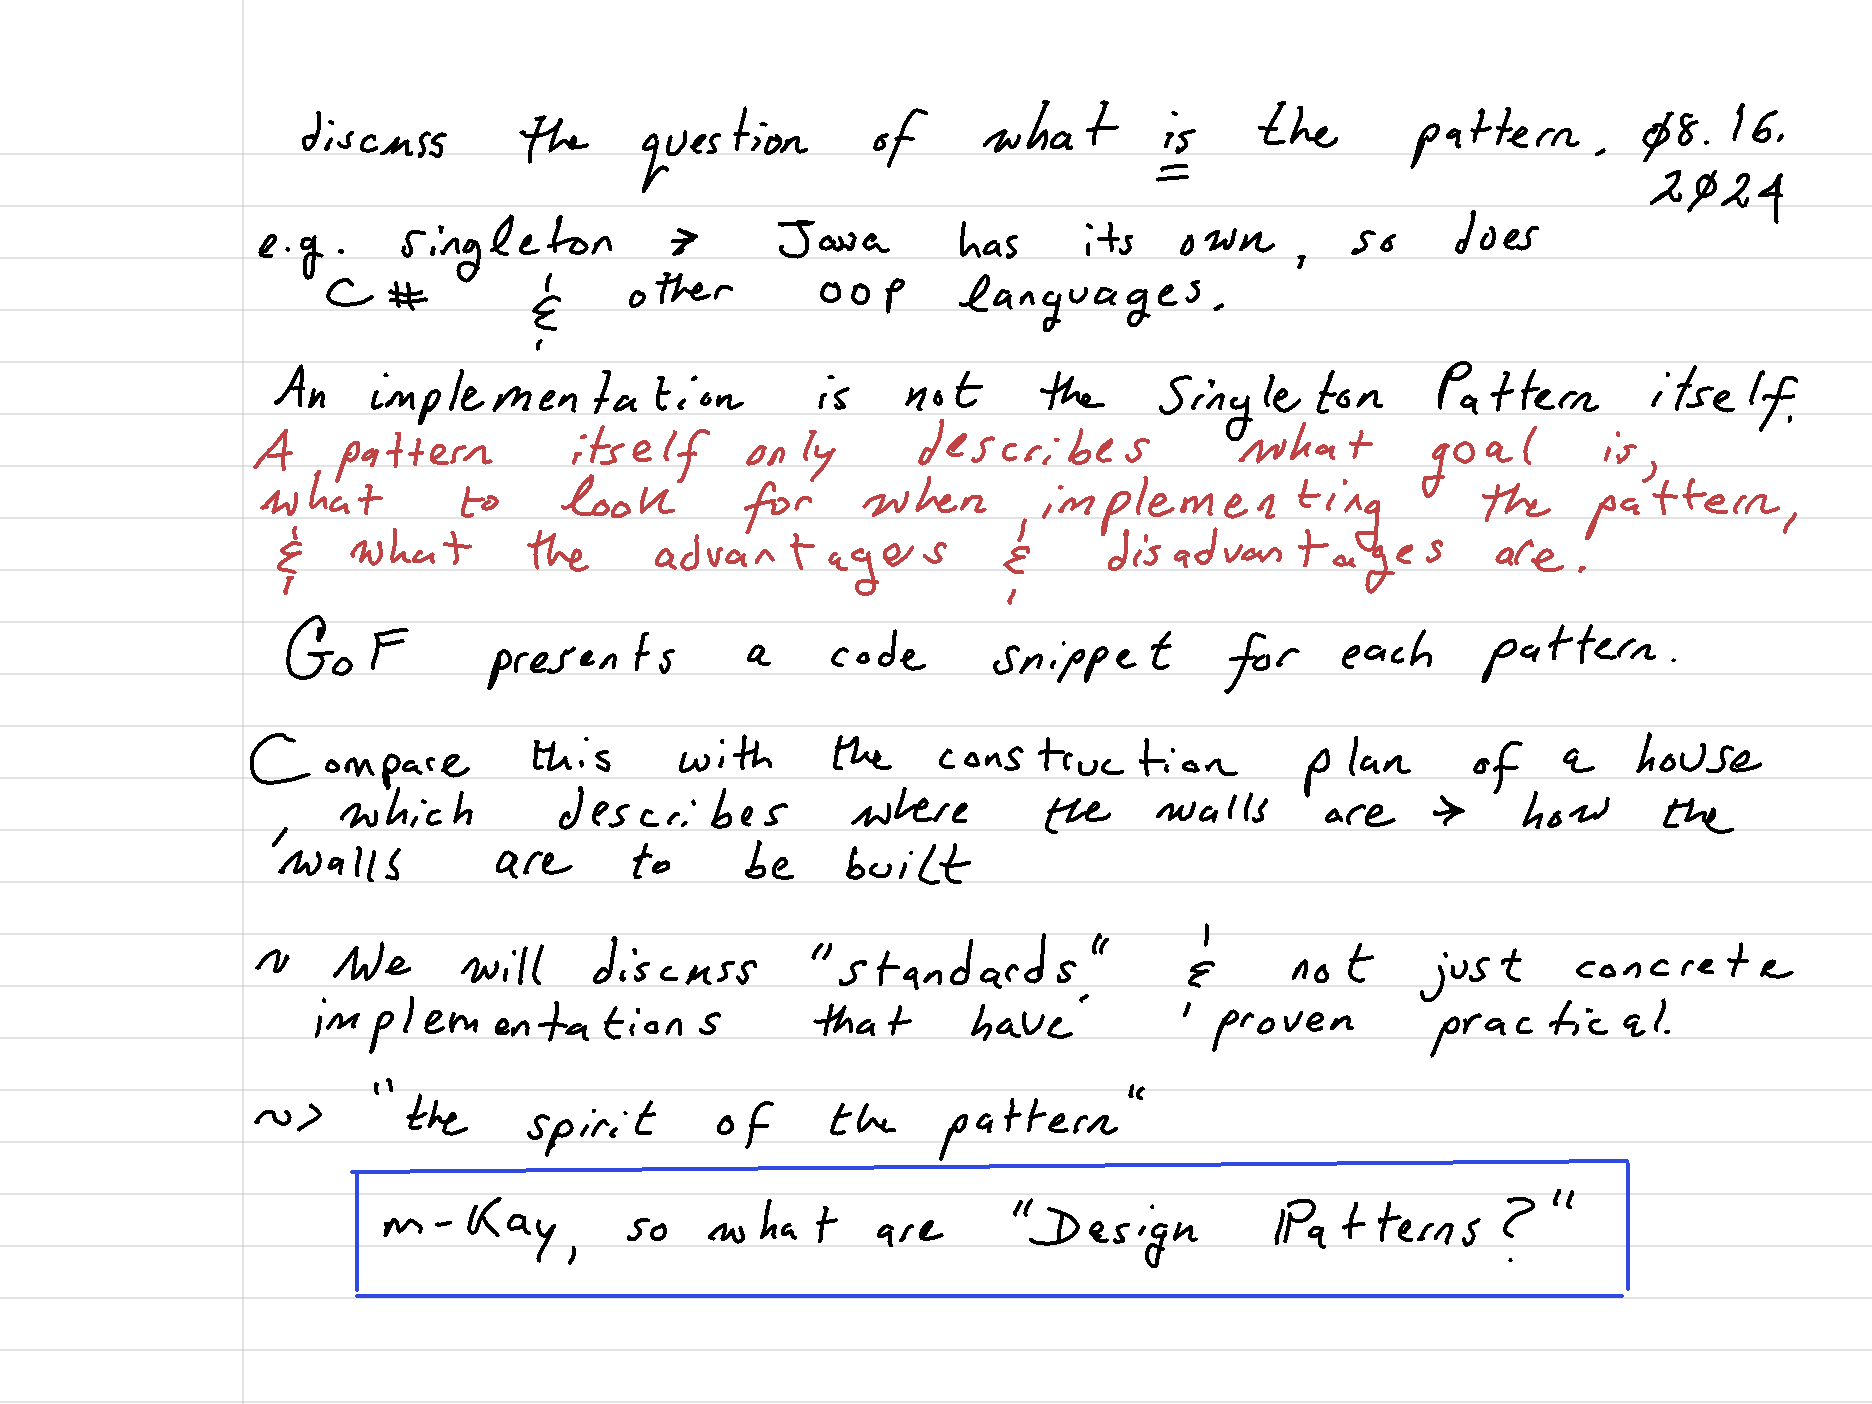 discuss the question of what is the pattern. 08.16.
2024
e.g. singleton → Java has its own, so does
C# & other OOP languages.
An implementation is not the Singleton Pattern itself.
A pattern itself only describes what goal is,
what to look for when implementing the pattern,
& what the advantages & disadvantages are.
GoF presents a code snippet for each pattern.
Compare this with the construction plan of a house
which describes where the walls are → how the
walls are to be built
~ We will discuss "standards." & not just concrete
implementations that have proven practical.
~> "the spirit of the pattern"
m-Kay, so what are "Design Patterns?"